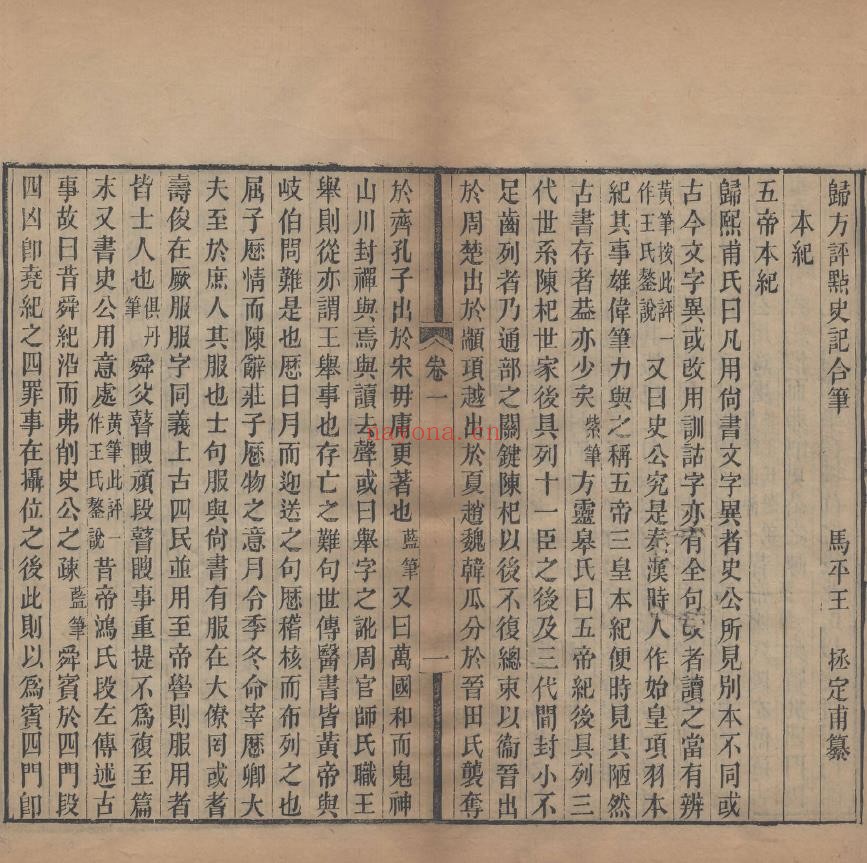 歸方評點史記合筆　馬平王　拯定甫纂
本紀
五帝本紀
歸熙甫氏曰凡用尙書文字異者史公所見別本不同或
古今文字異或改用訓詁字亦有全句改者讀之當有辨
黃筆按此評一作王氏鏊說又曰史公究是秦漢時人作始皇項羽本
紀其事雄偉筆力與之稱五帝三皇本紀便時見其陋然
古書存者葢亦少矣紫筆方靈皋氏曰五帝紀後具列三
代世系陳杞世家後具列十一臣之後及三代間封小不
足齒列者乃通部之關鍵陳杞以後不復總束以衞晉出
於周楚出於顓頊越出於夏趙魏韓瓜分於晉田氏襲奪
卷一
一
於齊孔子出於宋毋庸更著也藍筆又曰萬國和而鬼神
山川封禪與焉與讀去聲或曰舉字之訛周官師氏職王
舉則從亦謂王舉事也存亡之難句世傳醫書皆黃帝與
岐伯問難是也厯日月而迎送之句厯稽核而布列之也
屈子厯情而陳辭莊子厯物之意月令季冬命宰厯卿大
夫至於庶人其服也士句服與尙書有服在大僚罔或耆
壽俊在厥服服字同義上古四民並用至帝嚳則服用者
皆士人也俱丹筆舜父瞽瞍頑段瞽瞍事重提不爲複至篇
末又書史公用意處黃筆此評一作王氏鏊說昔帝鴻氏段左傳述古
事故曰昔舜紀沿而弗削史公之疎藍筆舜賓於四門段
四凶卽堯紀之四罪事在攝位之後此則以爲賓四門卽
nayona.cn